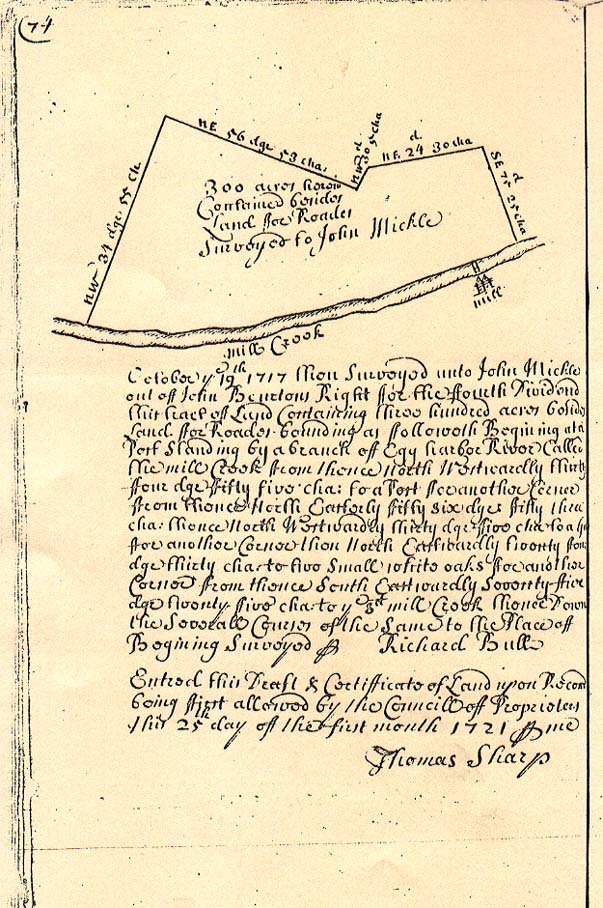 74
NE 56 dge 53 cha
NW 30 d 5 cha
NE 24 d 30 cha
SE 75 d 25 cha
NW 34 dge 55 ch
300 acres
Contained besides
Land ffor Roades
Surveyed to John Mickle
mill
mill Creek
October ye 19th 1717 then Surveyed unto John Mickle
out off John Right ffor the ffourth Dividend
this tract of Land Containing three hundred acres beside
Land ffor Roades bounding as ffolloweth Begining att a
Post Standing by a branch off Egg harbor River Called
the mill Creek ffrom thence North Westwardly thirty
ffour dge ffifty ffive cha: to a Post ffor another Corner
ffrom thence North Easterly ffifty six dge ffifty three
cha: thence North Westwardly thirty dge ffive cha to a
ffor another Corner then North Eastwardly twenty ffour
dge thirty cha to two Small white oaks ffor another
Corner ffrom thence South Eastwardly Seventy ffive
dge twenty ffive cha to ye sd mill Creek thence Down
the Severall Courses of the Same to the Place off
Begining Surveyed Richard Bull
Entred this Draft & Certificate of Land upon Record
being ffirst allowed by the Councill off Proprietors
this 25th day off the ffirst month 1721 me
Thomas Sharp